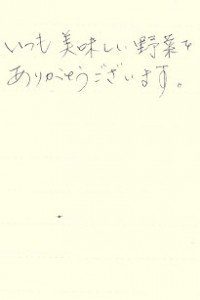 いつも美味しい野菜を
ありがとうございます。